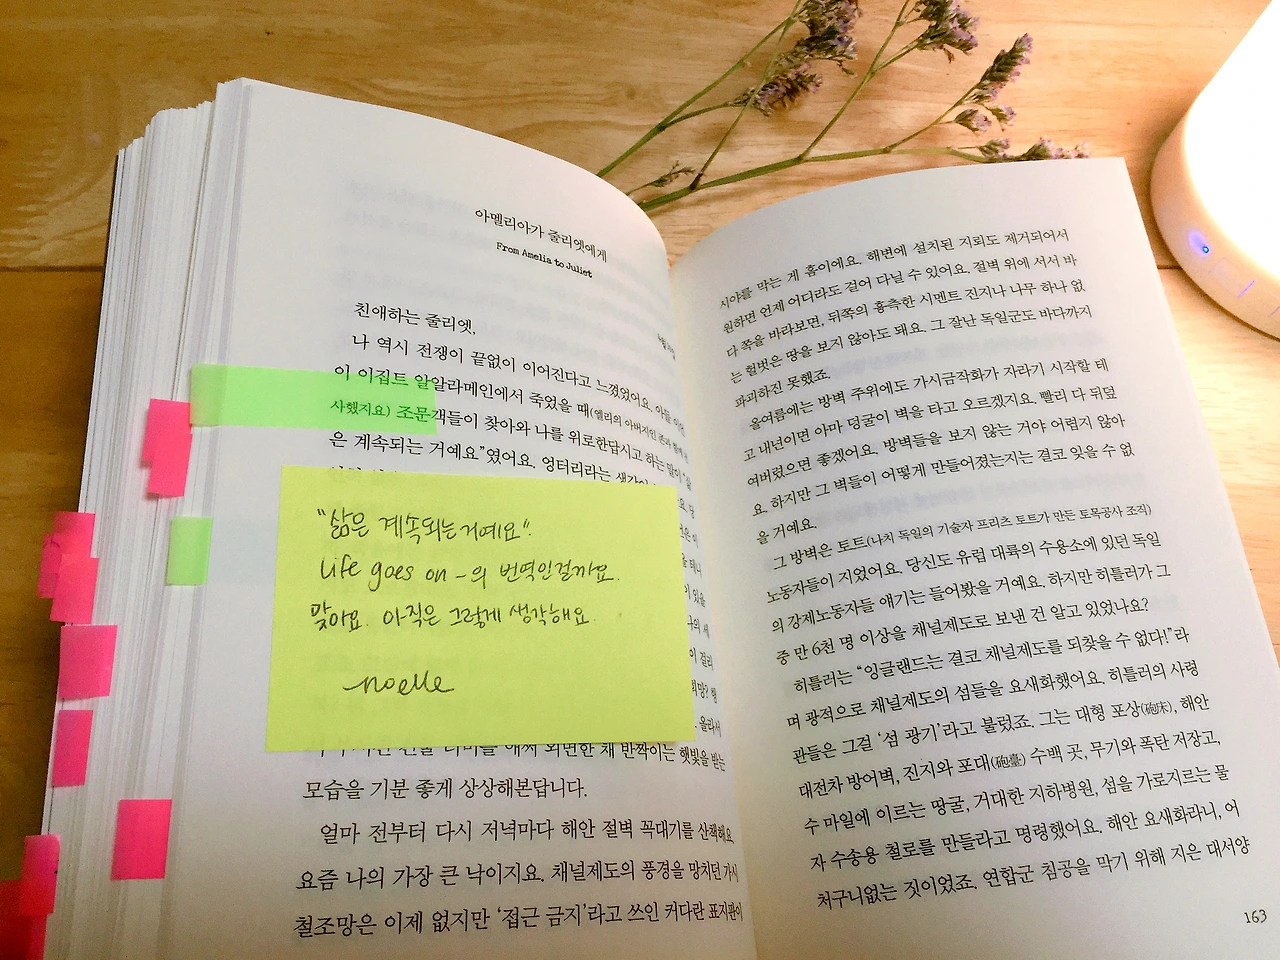 아멜리아가 줄리엣에게
From Amelia to Juliet
친애하는 줄리엣,
나 역시 전쟁이 끝없이 이어진다고 느꼈었어요. 아들
이 이집트 알알라메인에서 죽었을 때(엘리의 아버지인 존과 함께
사했지요) 조문객들이 찾아와 나를 위로한답시고 하는 말이 “삶
은 계속되는 거예요”였어요. 엉터리라는 생각이
“삶은 계속되는거예요”.
Life goes on - 의 번역인걸까요.
맞아요. 아직은 그렇게 생각해요.
noelle
애써 외면한 채 반짝이는 햇빛을 받는
모습을 기분 좋게 상상해본답니다.
얼마 전부터 다시 저녁마다 해안 절벽 꼭대기를 산책해요
요즘 나의 가장 큰 낙이지요. 채널제도의 풍경을 망치던 가시
철조망은 이제 없지만 ‘접근 금지’라고 쓰인 커다란 표지판이
시야를 막는 게 흠이에요. 해변에 설치된 지뢰도 제거되어서
원하면 언제 어디라도 걸어 다닐 수 있어요. 절벽 위에 서서 바
다 쪽을 바라보면, 뒤쪽의 흉측한 시멘트 진지나 나무 하나 없
는 헐벗은 땅을 보지 않아도 돼요. 그 잘난 독일군도 바다까지
파괴하진 못했죠.
올여름에는 방벽 주위에도 가시금작화가 자라기 시작할 테
고 내년이면 아마 덩굴이 벽을 타고 오르겠지요. 빨리 다 뒤덮
여버렸으면 좋겠어요. 방벽들을 보지 않는 거야 어렵지 않아
요. 하지만 그 벽들이 어떻게 만들어졌는지는 결코 잊을 수 없
을 거예요.
그 방벽은 토트(나치 독일의 기술자 프리츠 토트가 만든 토목공사 조직)
노동자들이 지었어요. 당신도 유럽 대륙의 수용소에 있던 독일
의 강제노동자들 얘기는 들어봤을 거예요. 하지만 히틀러가 그
중 만 6천 명 이상을 채널제도로 보낸 건 알고 있었나요?
히틀러는 “잉글랜드는 결코 채널제도를 되찾을 수 없다!”라
며 광적으로 채널제도의 섬들을 요새화했어요. 히틀러의 사령
관들은 그걸 ‘섬 광기’라고 불렀죠. 그는 대형 포상(砲床), 해안
대전차 방어벽, 진지와 포대(砲臺) 수백 곳, 무기와 폭탄 저장고,
수 마일에 이르는 땅굴, 거대한 지하병원, 섬을 가로지르는 물
자 수송용 철로를 만들라고 명령했어요. 해안 요새화라니, 어
처구니없는 짓이었죠. 연합군 침공을 막기 위해 지은 대서양
163